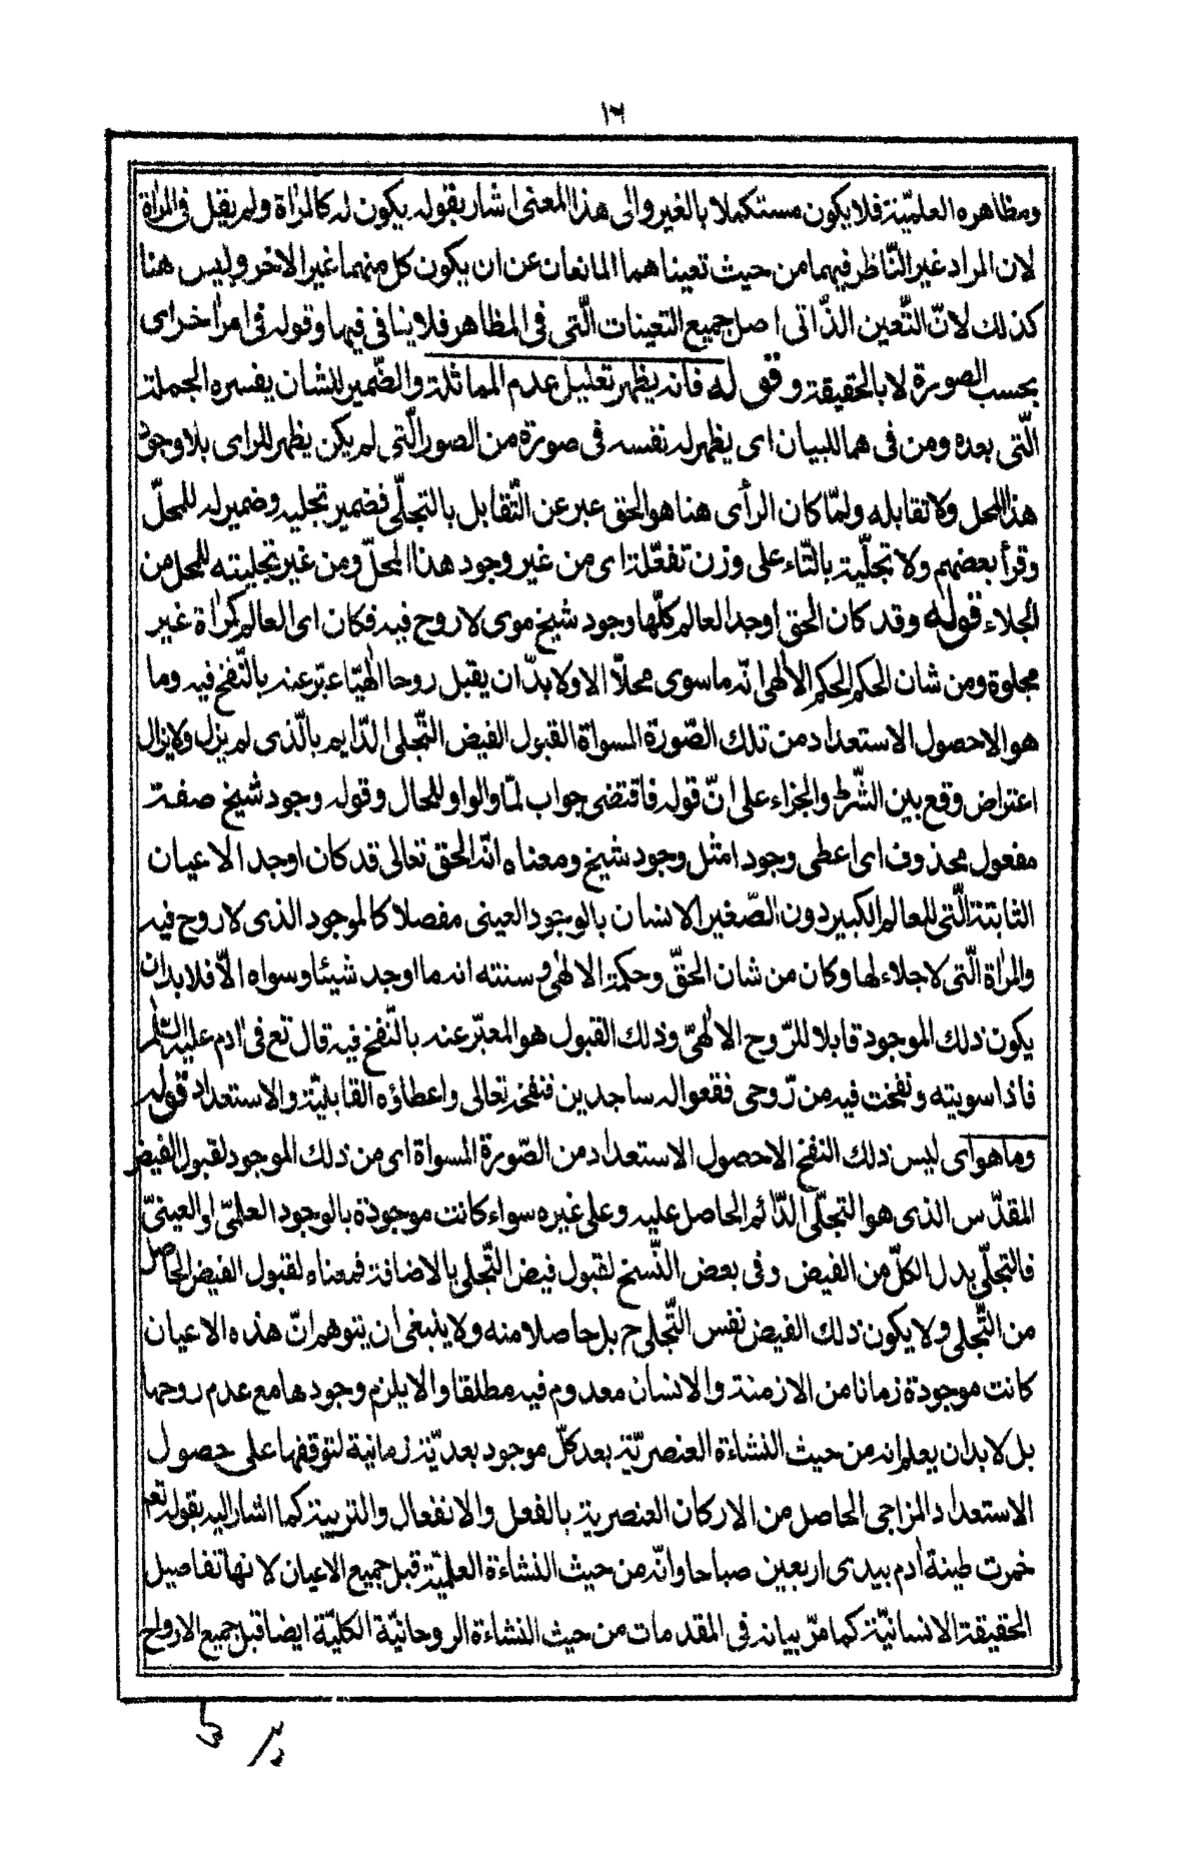 ١٦
ومظاهره العلمّية فلا يكون مستكملا بالغير والى هذا المعنى اشار بقوله يكون له كالمرٰاة ولم يقل فى المرٰاة
لان المراد غير النّاظر فيهما من حيث تعيناهما المانعان عن ان يكون كل منهما غير الاخر وليس هنا
كذلك لانّ التّعين الذّاتى اصل جميع التعينات الّتى فى المظاهر فلا ينافى فيها وقوله فى امرٰاخراى
بحسب الصورة لا بالحقيقة وقوله فانه يظهر تعليل عدم المماثلة والضّمير للشان يفسره الجملة
الّتى بعده ومن فى هما للبيان اى يظهر له نفسه فى صورة من الصور الّتى لم يكن يظهر للراى بلا وجود
هذا المحل ولا تقابله ولمّا كان الرأى هنا هو الحق عبر عن التّقابل بالتجلّى فضمير تجليه وضمير له للمحلّ
وقرأ بعضهم ولا تجلّية بالتّاء على وزن تفعّلة اى من غير وجود هذا المحلّ ومن غير تجليته للمحل من
الجلاء قوله وقد كان الحق اوجد العالم كلّها وجود شيخ موى لا روح فيه فكان اى العالم كمرٰاة غير
مجلوة ومن شان الحكم الحكم الالٰهى انّه ما سوى محلّا الا ولا بدّ ان يقبل روحا الٰهيّا عبّر عنه بالنّفخ فيه وما
هو الا حصول الاستعداد من تلك الصّورة المسواة القبول الفيض التّجلى الدّايم بالّذى لم يزل ولا يزال
اعتراض وقع بين الشّرط والجزاء على انّ قوله فاقتضى جواب لمّا والواو للحال وقوله وجود شيخ صفة
مفعول محذوف اى اعطى وجودا مثل وجود شيخ ومعناه انّ الحق تعالى قد كان اوجد الاعيان
الثابتة الّتى للعالم الكبير دون الصّغير الانسان بالوجود العينى مفصلا كالموجود الذى لا روح فيه
والمرٰاة الّتى لا جلاء لها وكان من شان الحقّ وحكمة الالٰهى وسنته انه ما اوجد شيئا وسواه الّا فلا بد ان
يكون ذلك الموجود قابلا للرّوح الالٰهىّ وذلك القبول هو المعبّر عنه بالنّفخ فيه قال تع فى اٰدم عليه السّلم
فاذا سويته ونفخت فيه من رّوحى فقعوا له ساجدين فنفخه تعالى واعطاؤه القابليّة والاستعداد قوله
وما هو اى ليس ذلك النفخ الا حصول الاستعداد من الصّورة المسواة اى من ذلك الموجود لقبول الفيض
المقدّس الذى هو التجلّى الدّائم الحاصل عليه وعلى غيره سواء كانت موجودة بالوجود العلمىّ او العينىّ
فالتجلّى بدل الكلّ من الفيض وفى بعض النّسخ لقبول فيض التّجلى بالاضافة فمعناه لقبول الفيض الحاصل
من التّجلى ولا يكون ذلك الفيض نفس التّجلى ح بل حاصلا منه ولا ينبغى ان يتوهم انّ هذه الاعيان
كانت موجودة زمانا من الازمنة والانسان معدوم فيه مطلقا والا يلزم وجودها مع عدم روحها
بل لا بد ان يعلم انه من حيث النشاءة العنصريّة بعد كلّ موجود بعديّة زمانية لتوقفها على حصول
الاستعداد المزاجى الحاصل من الاركان العنصرية بالفعل والانفعال والتربية كما اشار اليه بقوله تعم
خمرت طينة اٰدم بيدى اربعين صباحا وانّه من حيث النشاءة العلميّة قبل جميع الاعيان لانها تفاصيل
الحقيقة الانسانيّة كما مرّ بيانه فى المقدمات من حيث النشاءة الروحانيّة الكليّة ايضا قبل جميع الارواح